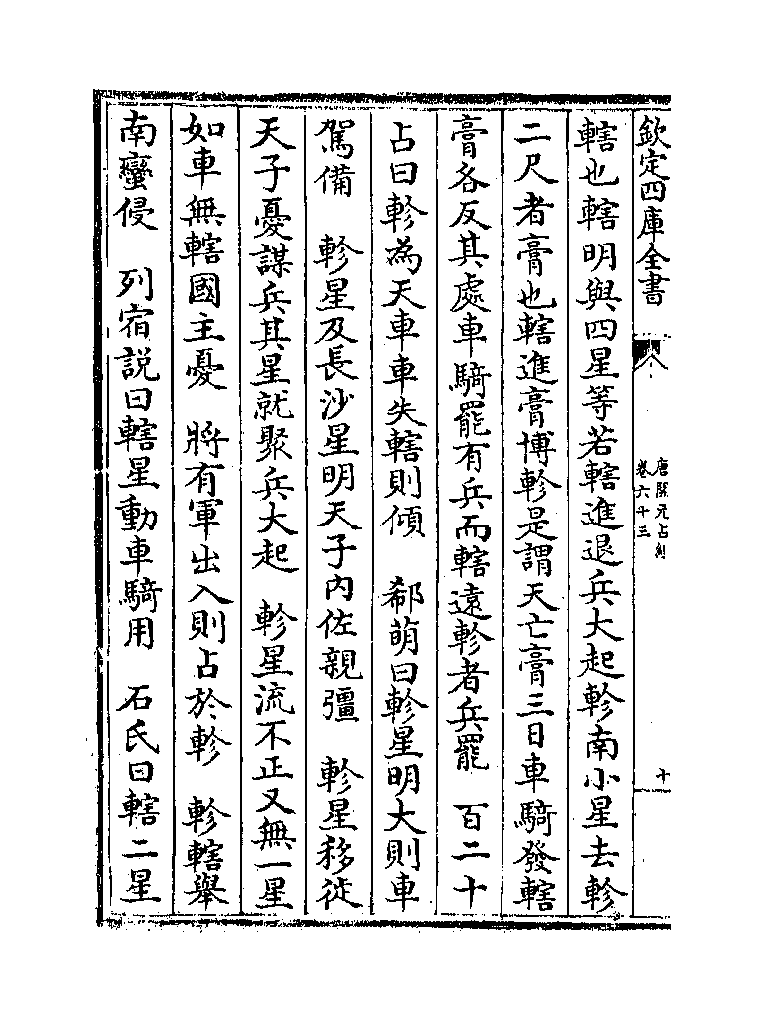 欽定四庫全書
唐開元占經
卷六十三
十
轄也轄明與四星等若轄進退兵大起軫南小星去軫
二尺者膏也轄進膏博軫是謂天亡膏三日車騎發轄
膏各反其處車騎罷有兵而轄遠軫者兵罷　百二十
占曰軫為天車車失轄則傾　郗萌曰軫星明大則車
駕備　軫星及長沙星明天子內佐親彊　軫星移徙
天子憂謀兵其星就聚兵大起　軫星流不正又無一星
如車無轄國主憂　將有軍出入則占於軫　軫轄舉
南蠻侵　列宿説曰轄星動車騎用　石氏曰轄二星